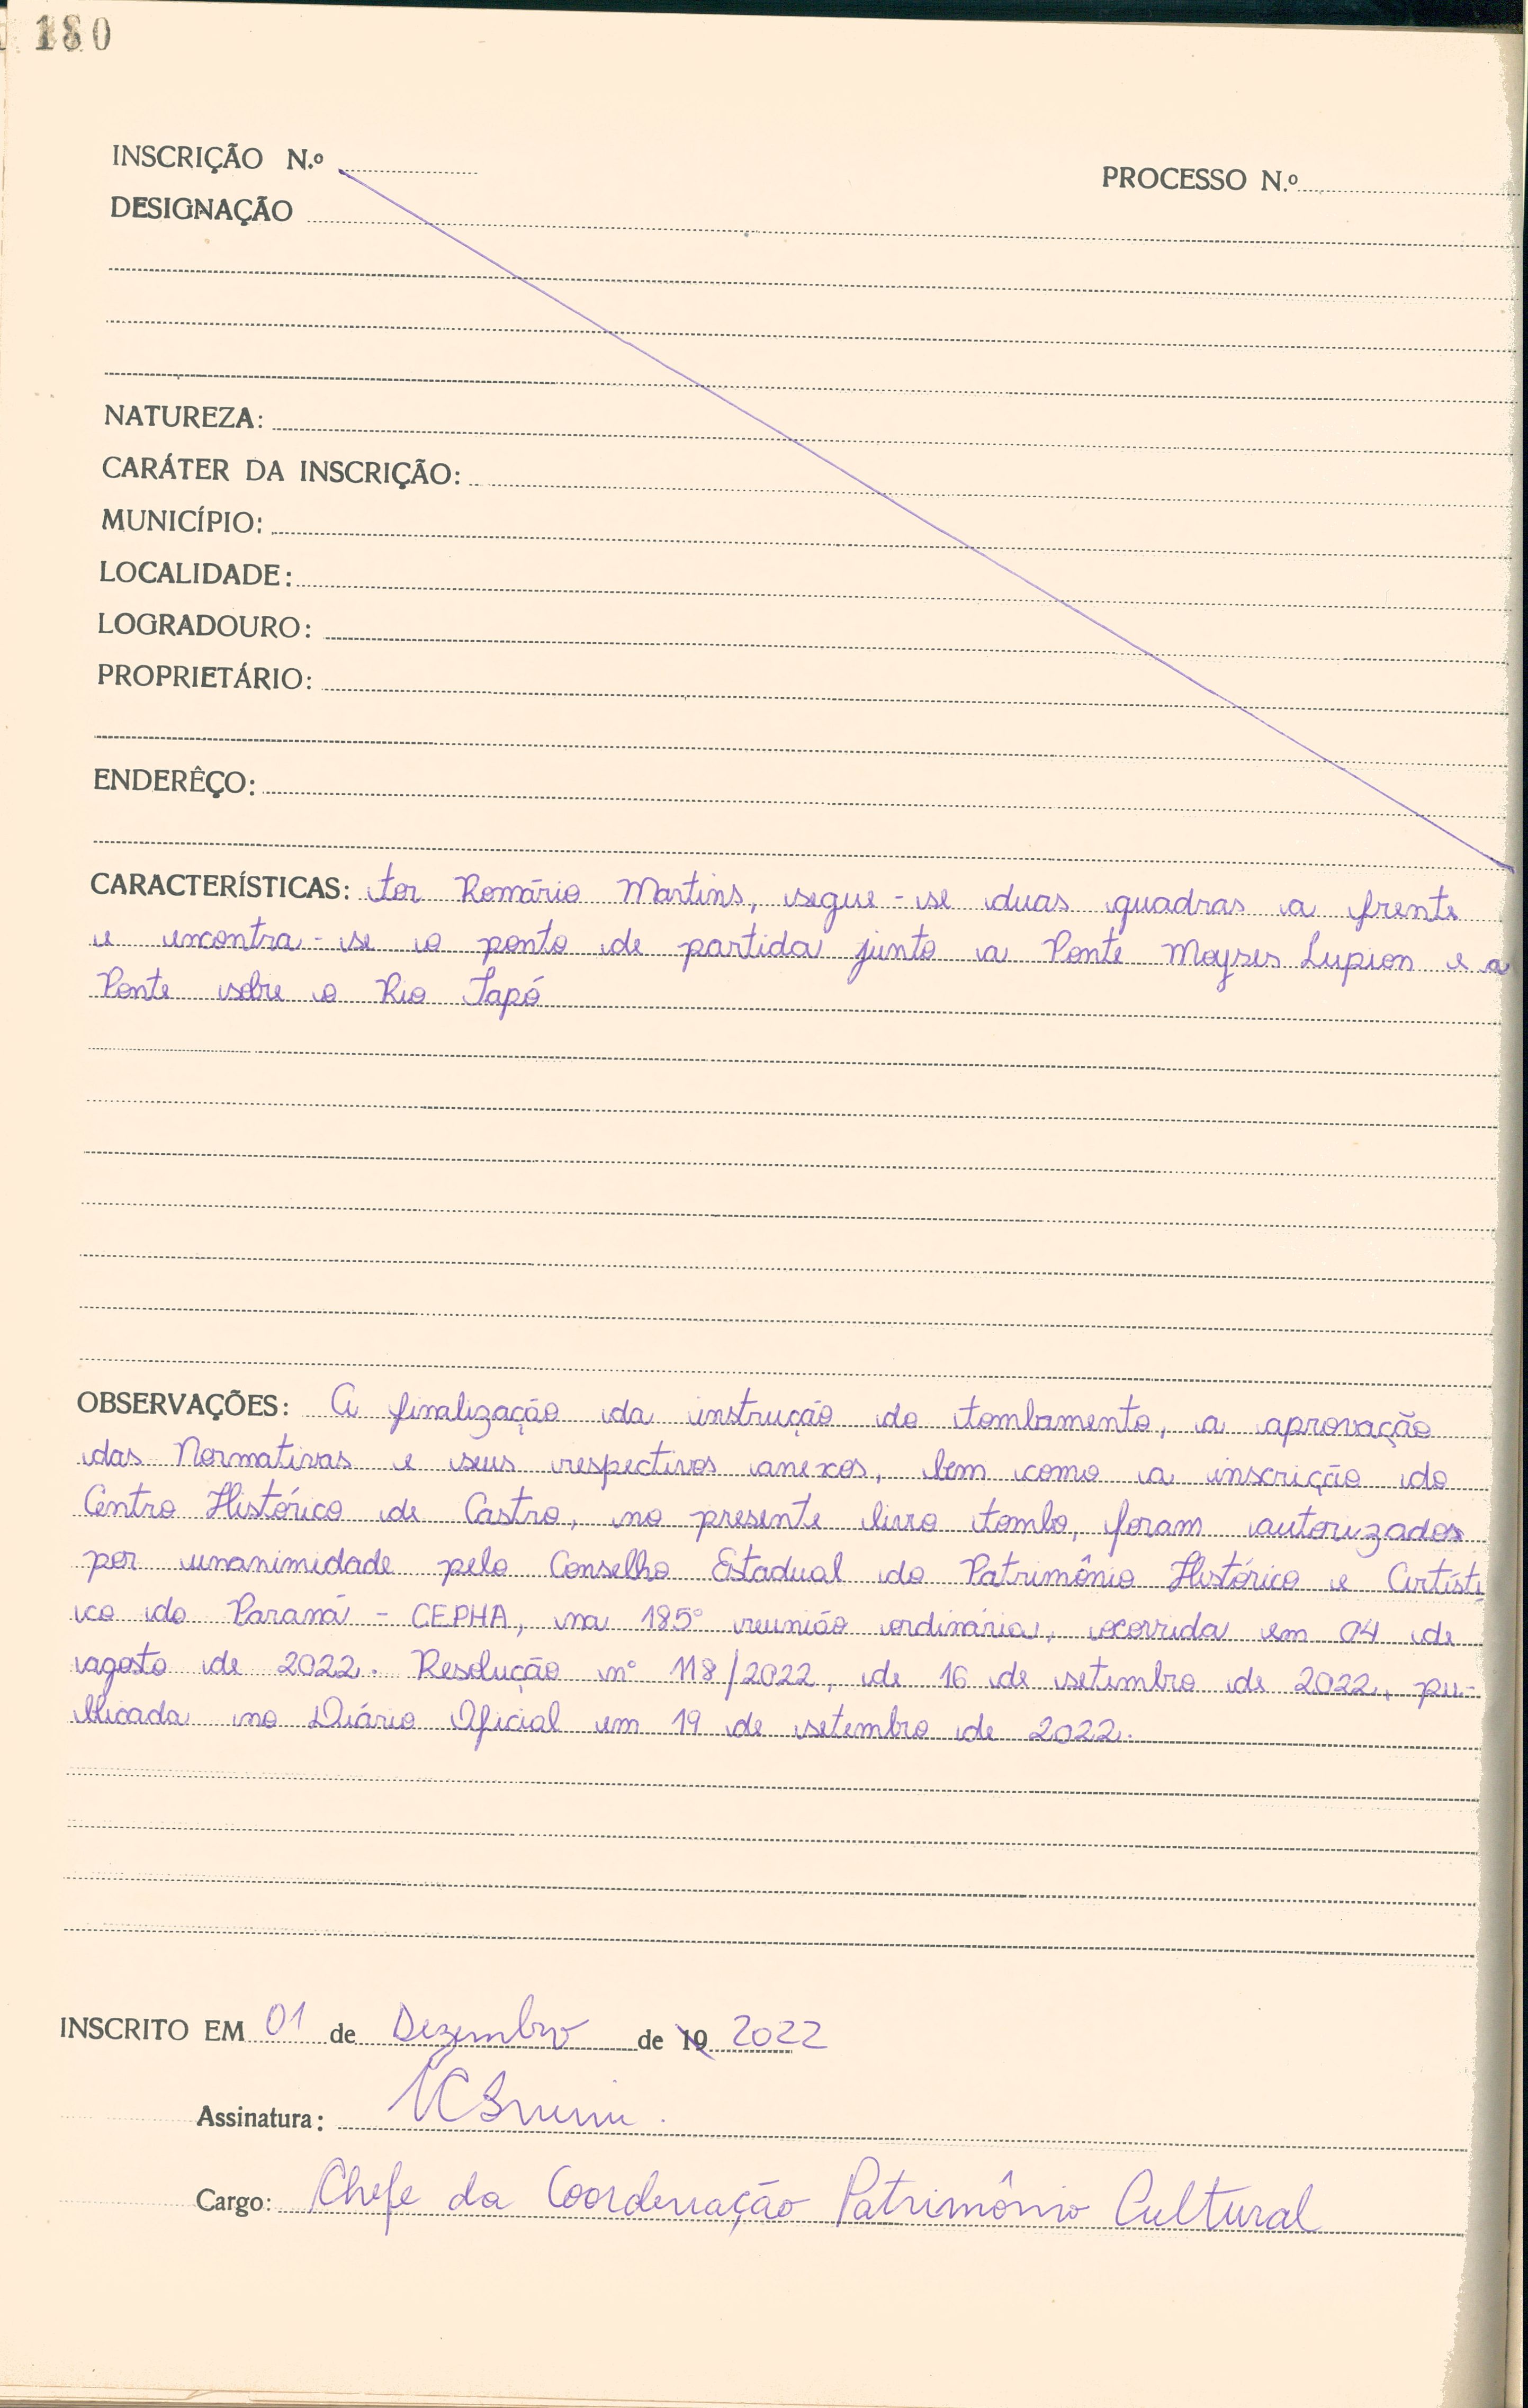 180
INSCRIÇÃO N.º
PROCESSO N.º
DESIGNAÇÃO
NATUREZA:
CARÁTER DA INSCRIÇÃO:
MUNICÍPIO:
LOCALIDADE:
LOGRADOURO:
PROPRIETÁRIO:
ENDERÊÇO:
CARACTERÍSTICAS: tor Romário Martins, segue-se duas quadras a frente
e encontra-se o ponto de partida junto a Ponte Moyses Lupion e a
Ponte sobre o Rio Iapó
OBSERVAÇÕES: A finalização da instrução do tombamento, a aprovação
das Normativas e seus respectivos anexos, bem como a inscrição do
Centro Histórico de Castro, no presente livro tombo, foram autorizados
por unanimidade pelo Conselho Estadual do Patrimônio Histórico e Artísti
co do Paraná - CEPHA, na 185º reunião ordinária, ocorrida em 04 de
agosto de 2022. Resolução nº 118/2022, de 16 de setembro de 2022, pu-
blicada no Diário Oficial em 19 de setembro de 2022.
INSCRITO EM 01 de Dezembro de 19 2022
Assinatura:
Cargo: Chefe da Coordenação Patrimônio Cultural